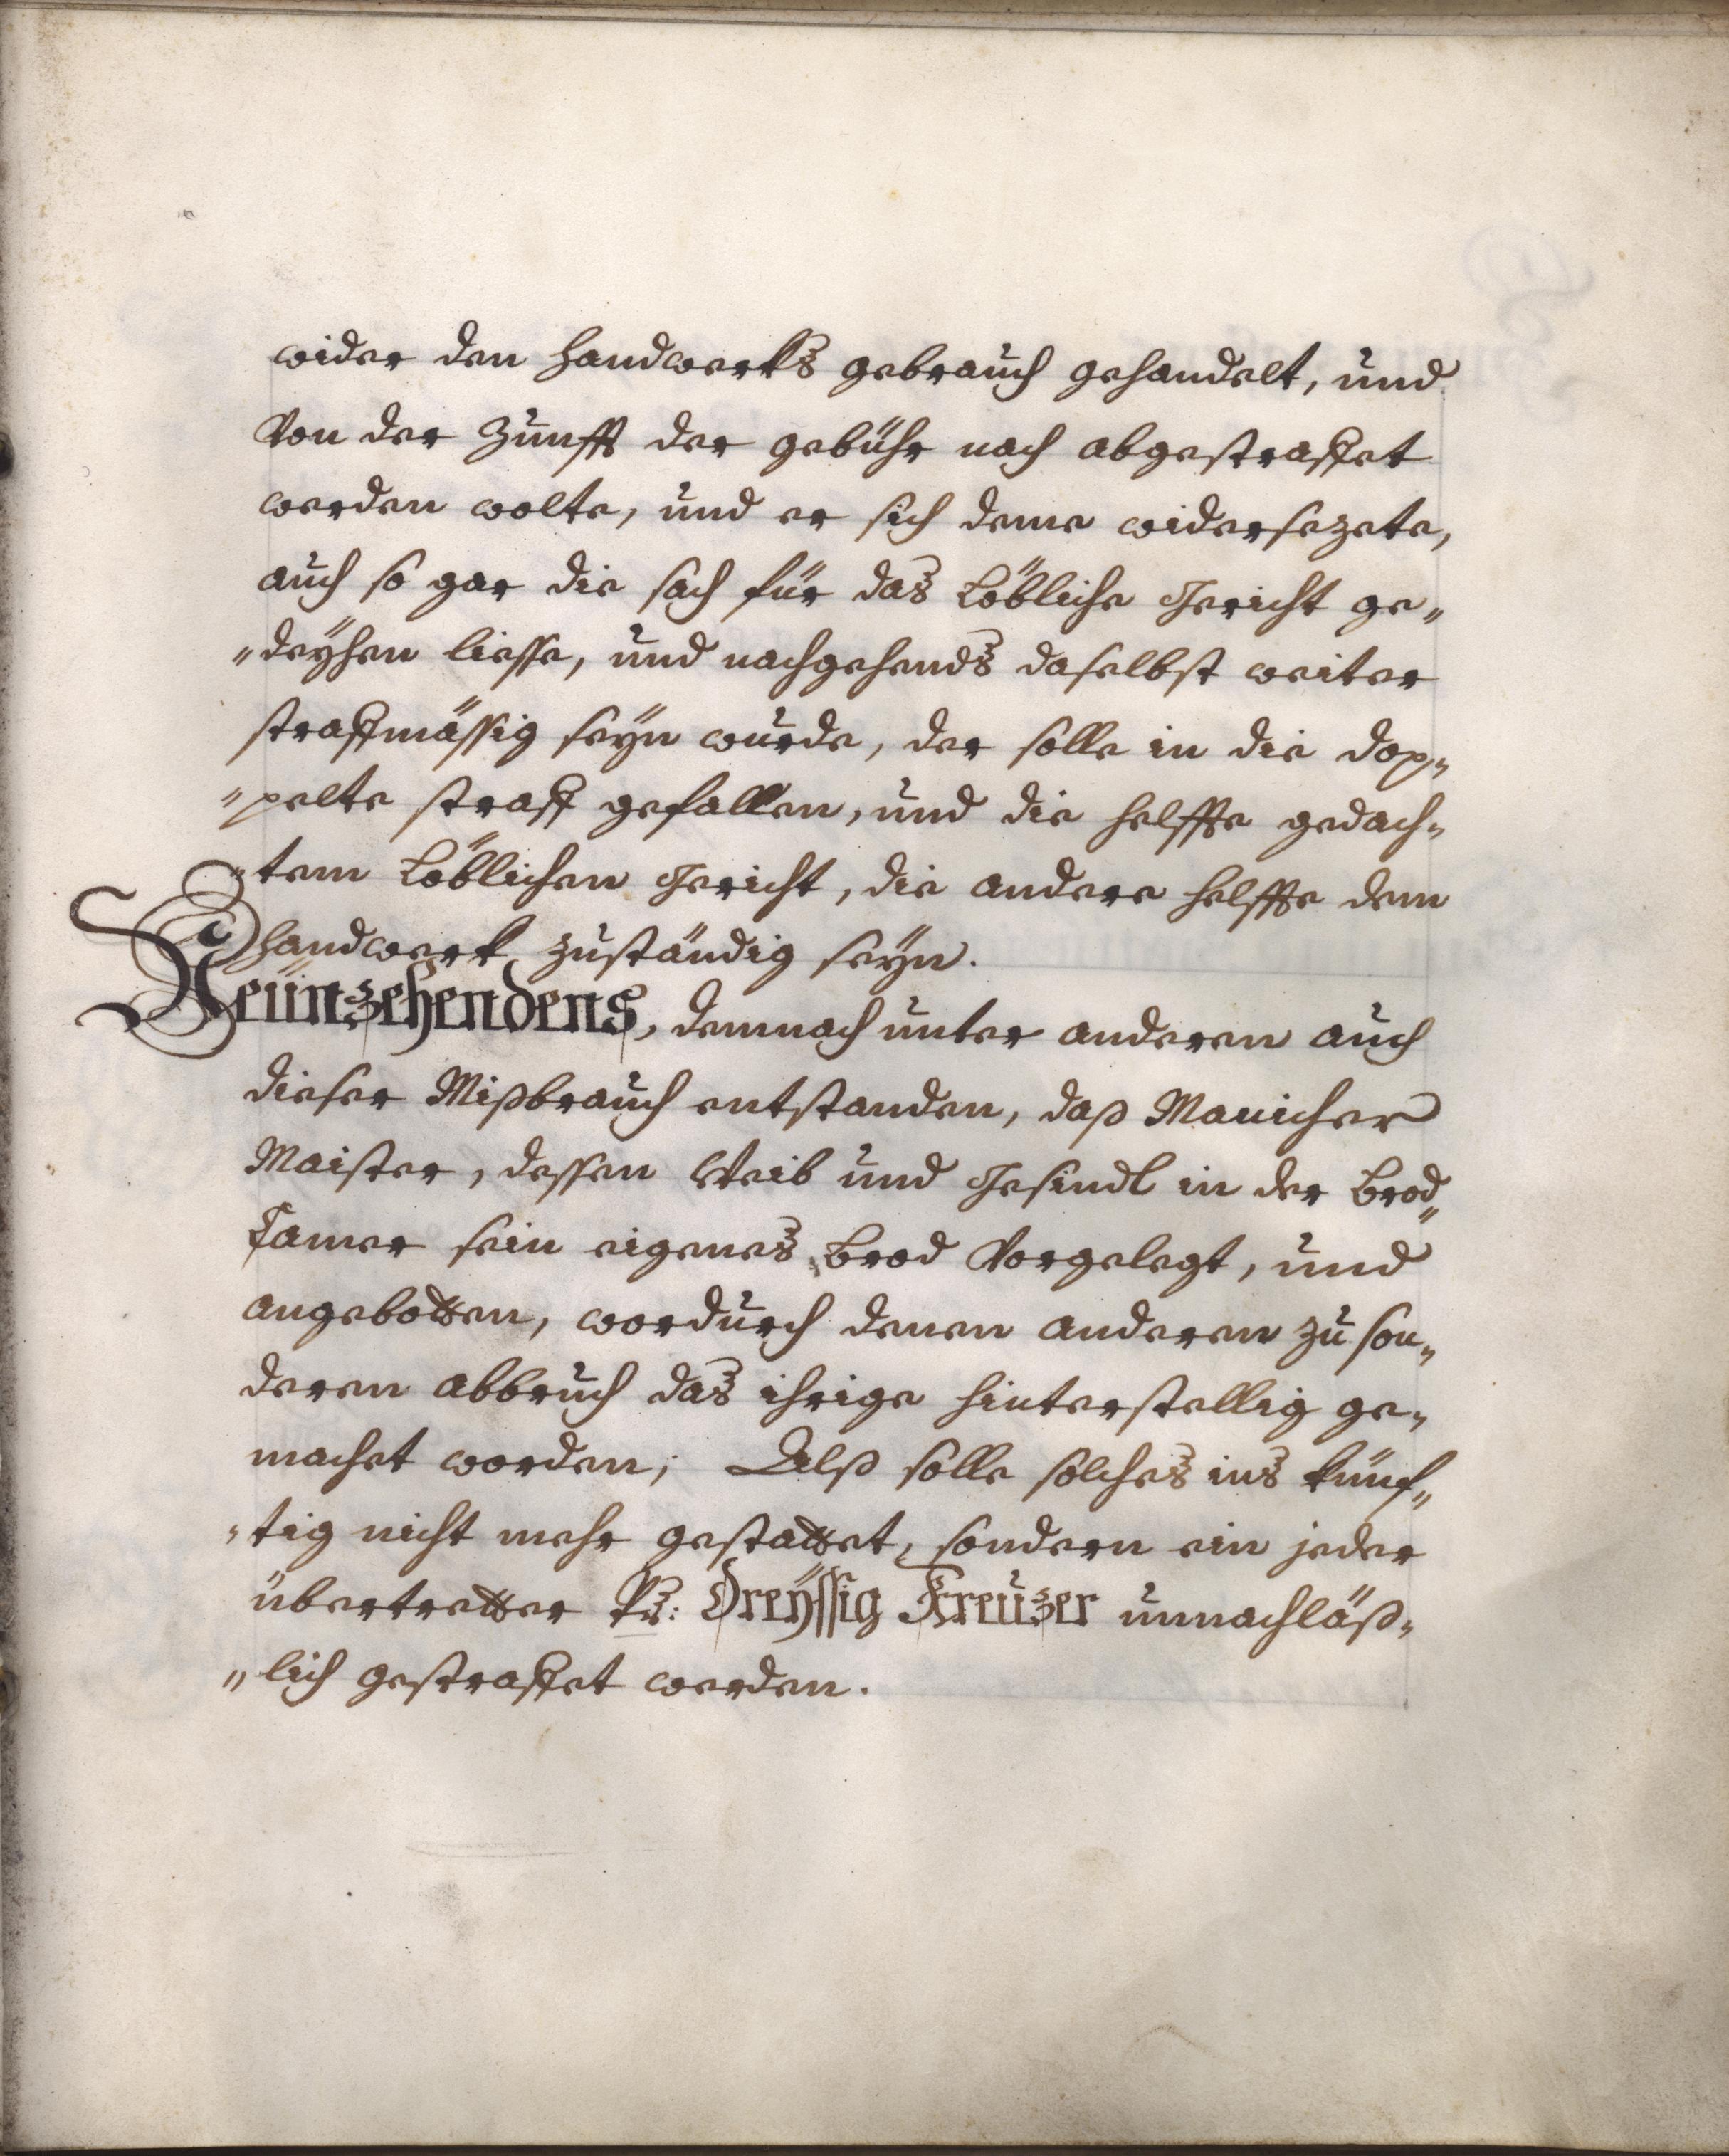 wider den handwerks gebrauch gehandelt, und
Von der Zunfft der gebühr nach abgestraffet
werden wolte, und er sich deme widersezete,
auch so gar die sach für das Löbliche Gericht ge„
„deÿhen liesse, und nachgehends daselbst weiter
straffmässig seÿn wurde, der solle in die dop„
„pelte straff gefallen, und die helffte gedach„
„tem Löblichen Gericht, die andere helffte dem
handwerk zuständig seÿn.
Neünzehendens, demnach unter anderen auch
dieser Mißbrauch entstanden, daß Manicher
Maister, dessen Weib und Gesindl in der Brod„
Camer sein eigenes Brod Vorgelegt, und
angebotten, wordurch denen anderen zu son„
deren abbruch das ihrige hinterstellig ge„
machet worden; Alß solle solches ins künf„
„tig nicht mehr gestattet, sondern ein jeder
übertretter Pr: Dreÿssig Kreuzer unnachläß„
„lich gestraffet werden.